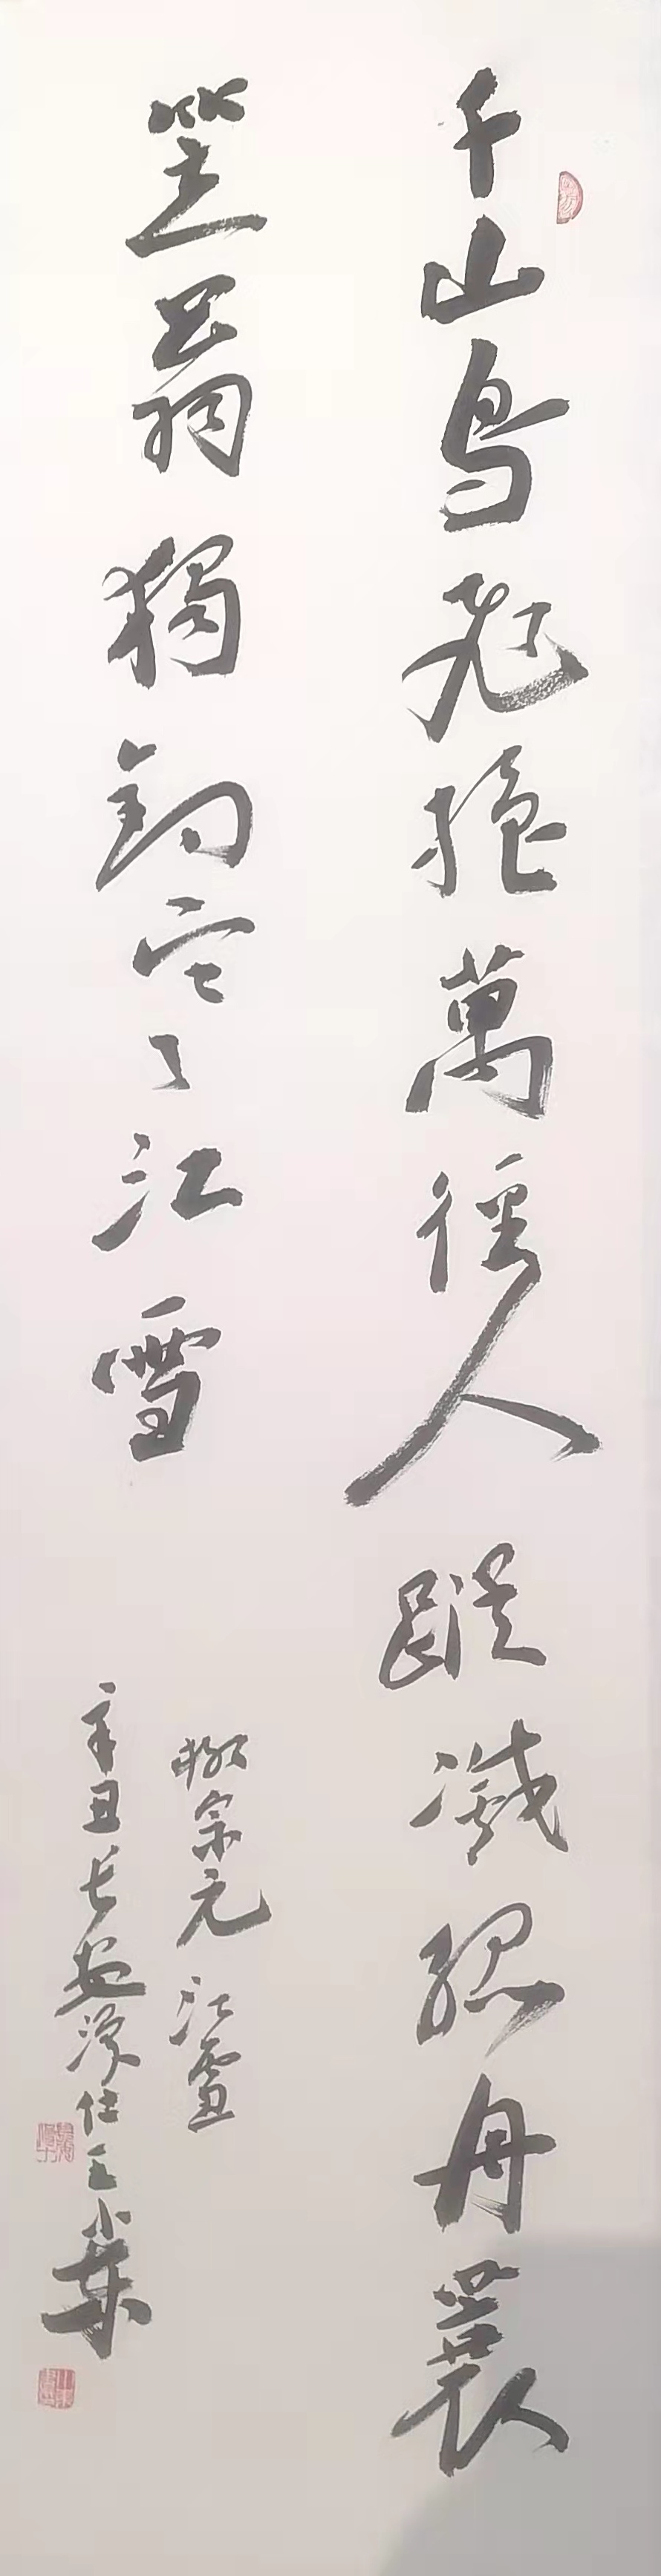 千山鳥飛絶萬徑人蹤滅孤舟蓑
笠翁獨釣寒江雪
柳宗元江雪
辛丑长安